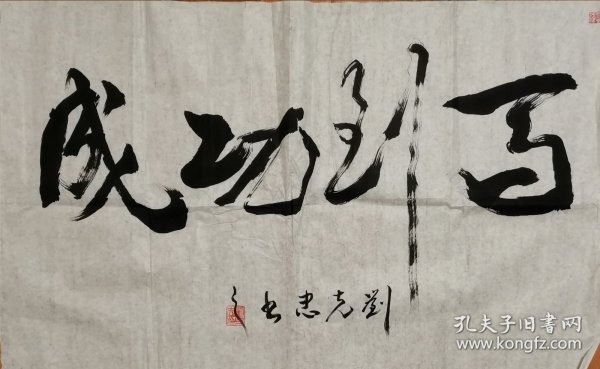 马到功成
劉克忠书
孔夫子旧书网
www.kongfz.com